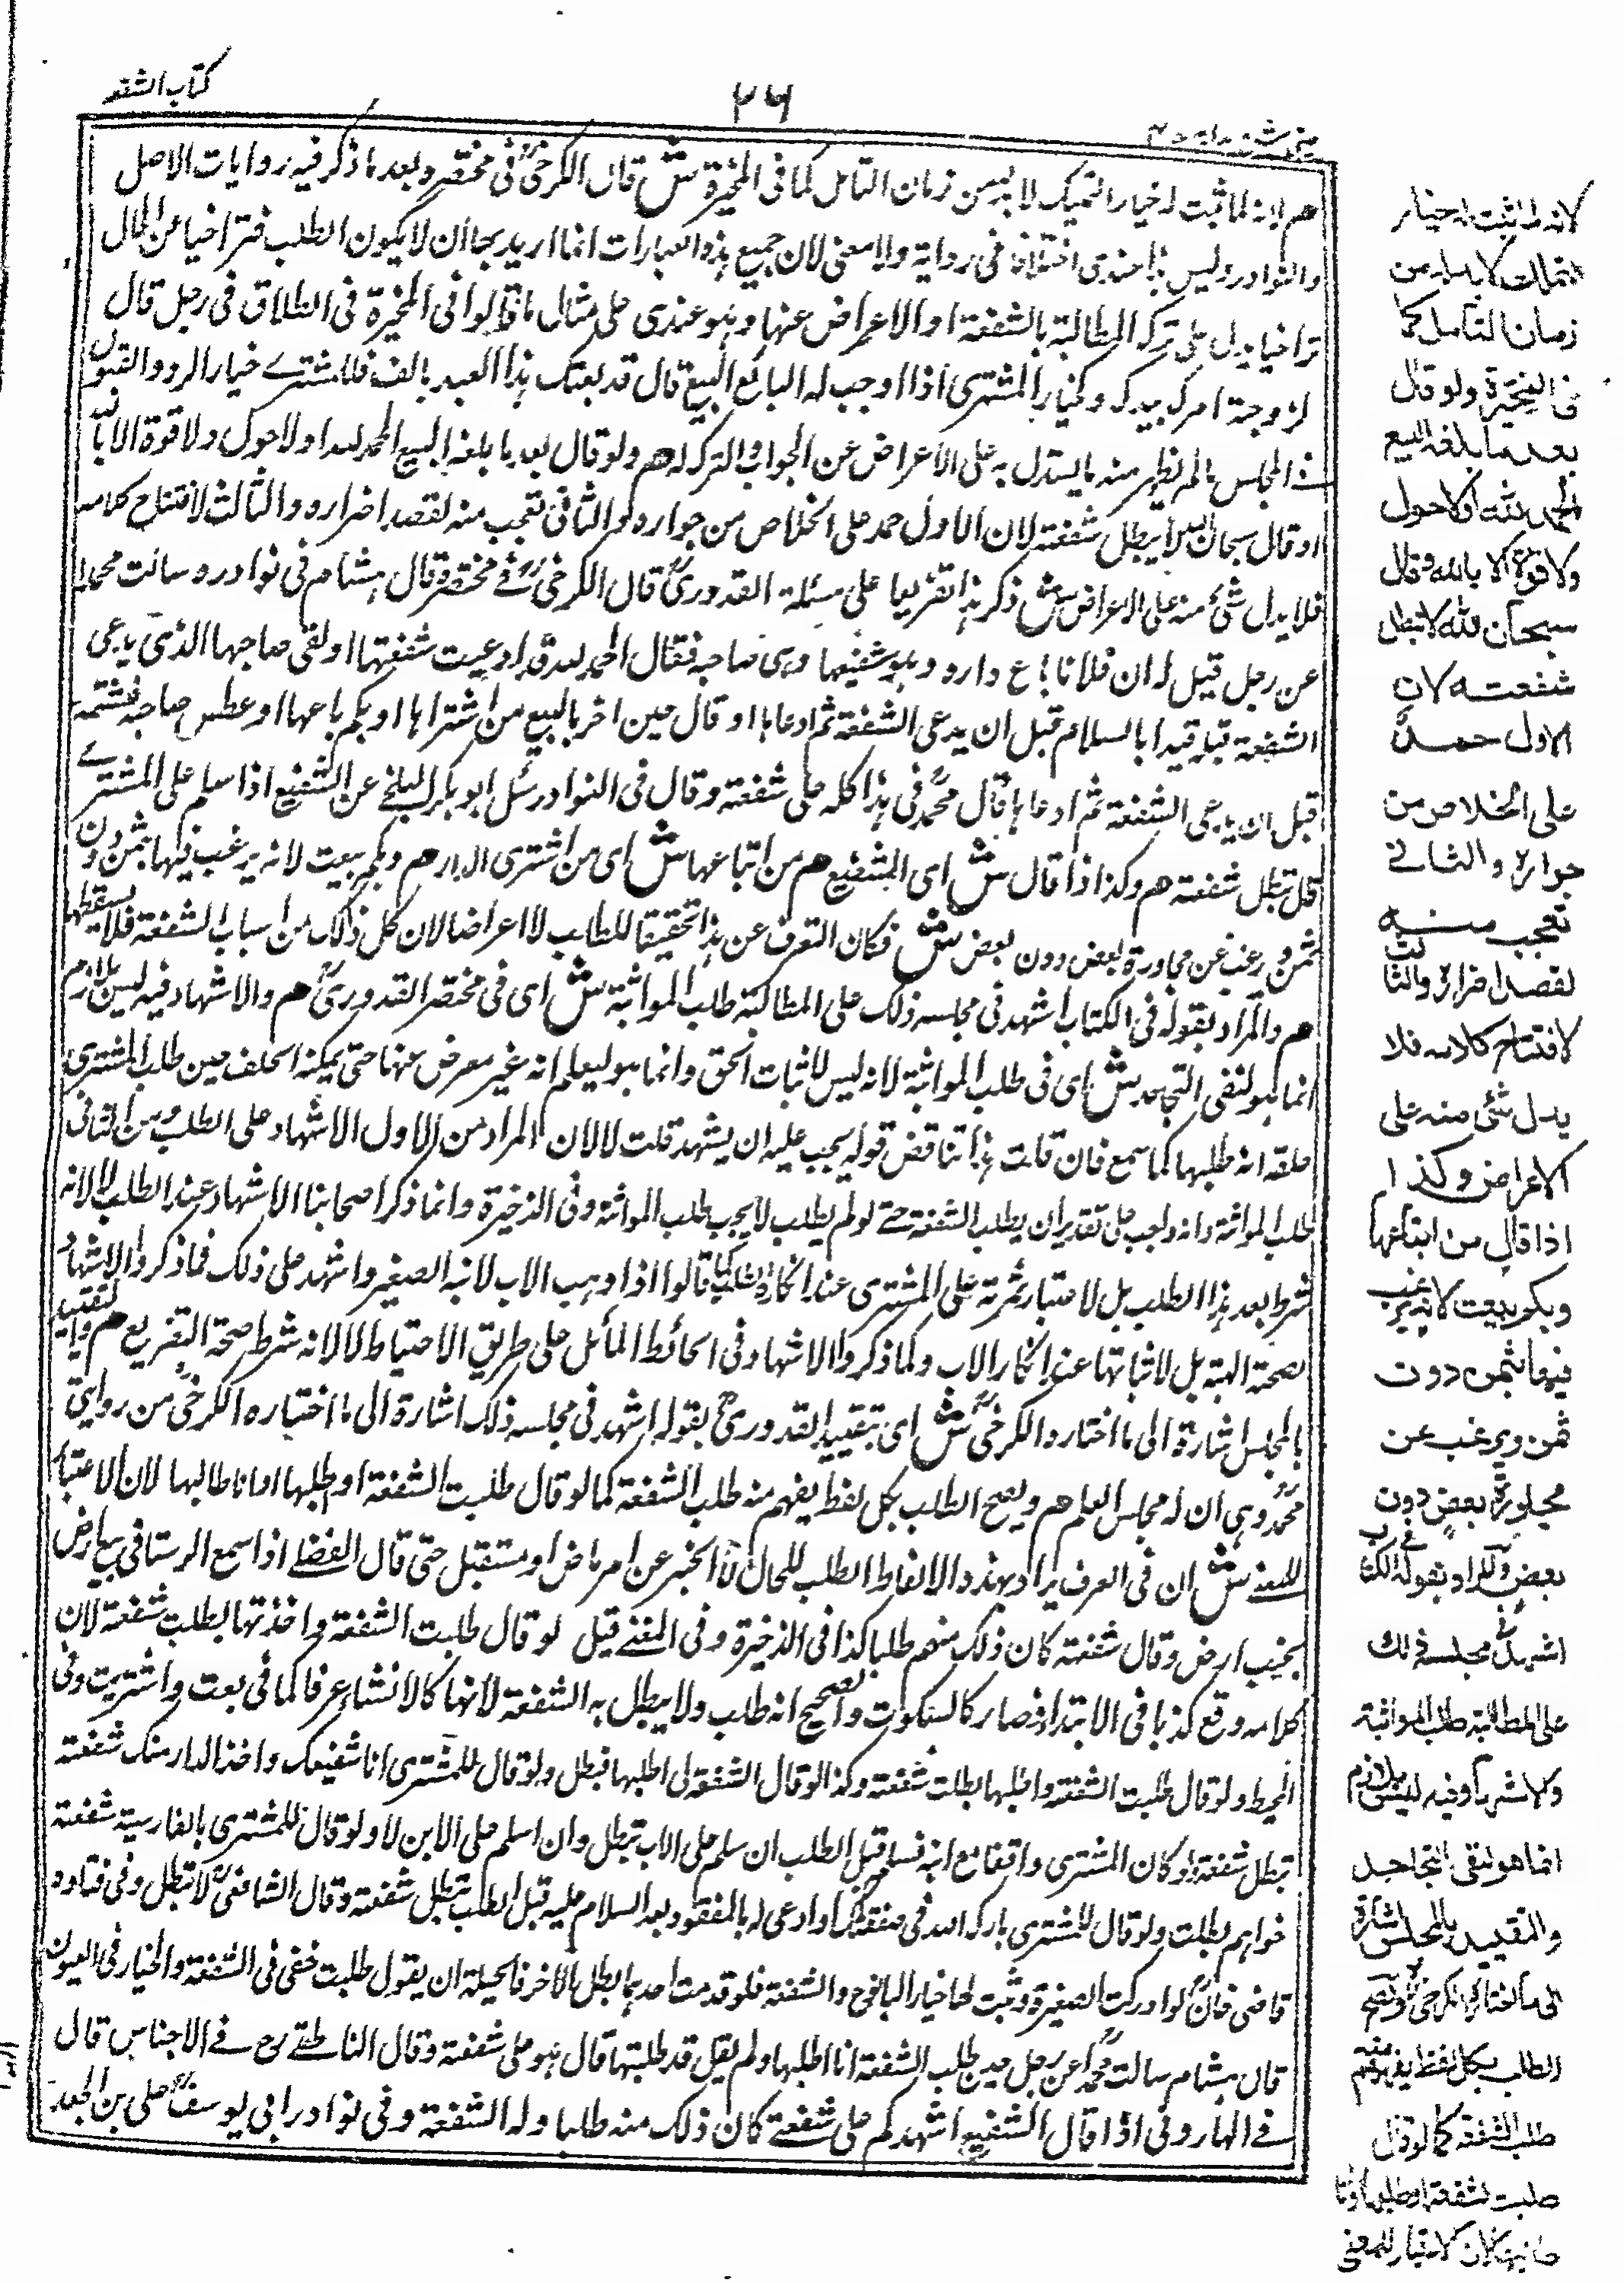 كتاب الشفعة
٢٦
هم لانه لما ثبت له خيار التملك لا بد له من زمان التامل كما فى المخيرة ش قال الكرخىؒ فى مختصره وبعد ما ذكر فيه روايات الاصل
والنوادر وليس هذا عندى اختلافا فى رواية ولا معنى لان جميع هذه العبارات انما اريد بها ان لا يكون الطلب متراخيا عن الحال
تراخيا يدل على ترك المطالبة بالشفعة او الاعراض عنها وهو عندى على مثال ما قالوا فى المخيرة فى الطلاق فى رجل قال
لزوجة امرك بيدك وكخيار المشترى اذا اوجب له البائع البيع قال قد بعتك هذا العبد بالف فللمشترے خيار الرد والقبول
فے المجلس ما لم يظهر منه ما يستدل به على الاعراض عن الجواب والترك له هم ولو قال بعد ما بلغه البيع الحمد لله او لا حول ولا قوة الا بالله
او قال سبحان الله لا يبطل شفعة لان الاول حمد على الخلاص من جواره والثانى تعجب منه لقصد اضراره والثالث لافتتاح كلامه
فلا يدل شئ منه على الاعراض ش ذكر هذا تفريعا على مسئلة القدورىؒ قال الكرخىؒ فے مختصره قال هشام فى نوادره سالت محمدا
عن رجل قيل له ان فلانا باع داره وهو شفيعها وهى صاحبه فقال الحمد لله قد ادعيت شفعتها او لقى صاحبها الذى يدعى
الشفعة قبله فبدا بالسلام قبل ان يدعى الشفعة ثم ادعاها او قال حين اخبر بالبيع من اشتراها او بكم باعها او عطس صاحبه فشمته
قبل ان يدعى الشفعة ثم ادعاها قال محمدؒ فى هذا كله على شفعة وقال فى النوادر سئل ابو بكر البلخے عن الشفيع اذا سلم على المشترے
قال تبطل شفعة هم وكذا اذا قال ش اى الشفيع هم من ابتاعها ش اى من اشترى الدار هم وبكم بيعت لانه يرغب فيها بثمن دون
ثمن ويرغب عن مجاورة بعض دون بعض ش فكان التعرف عن هذا تحقيقا للطلب لا اعراضا لان كل ذلك من اسباب الشفعة فلا يسقطها
هم والمراد بقوله فى الكتاب اشهد فى مجلسه ذلك على المطالبة طلب المواثبة ش اى فى مختصر القدورىؒ هم والاشهاد فيه ليس بلازم
انما هو لنفى التجاحد ش اى فى طلب المواثبة لانه ليس لاثبات الحق وانما هو ليعلم انه غير معرض عنها حتى يمكنه الحلف حين طلب المشترى
حلفه انه طلبها كما سمع فان قلت هذا تناقض قوله يجب عليه ان يشهد قلت لا لان المراد من الاول الاشهاد على الطلب ومن الثانى
طلب المواثبة وانه واجب على تقدير ان يطلب الشفعة حتے لو لم يطلب لا يجب طلب المواثبة وفى الذخيرة وانما ذكر اصحابنا الاشهاد عند الطلب لا لانه
شرط بعد هذا الطلب بل لاعتبار ثمرته على المشترى عند انكاره الطلب كما قالوا اذا وهب الاب لابنه الصغير واشهد على ذلك فما ذكروا الاشهاد
لصحة الهبة بل لاثباتها عند انكار الاب وكما ذكروا الاشهاد فى الحائط المائل على طريق الاحتياط لا لانه شرط صحة التفريع هم والتقييد
بالمجلس اشارة الى ما اختاره الكرخىؒ ش اى تقييد القدورىؒ بقوله اشهد فى مجلسه ذلك اشارة الى ما اختياره الكرخىؒ من روايتى
محمدؒ وهى ان له مجلس العلم هم ويصح الطلب بكل لفظ يفهم منه طلب الشفعة كما لو قال طلبت الشفعة او اطلبها او انا طالبها لان الاعتبار
للمعنے ش ان فى العرف يراد بهذه الالفاظ الطلب للحال لا الخبر عن امر ماض او مستقبل حتى قال الفضلے اذا سمع الرستاقى بيع ارض
بجنب ارض وقال شفعة كان ذلك منهم طلبا كذا فى الذخيرة وفى المغنے قيل لو قال طلبت الشفعة واخذتها بطلت شفعة لان
كلامه وقع كذبا فى الابتداء فصار كالسكوت والصحيح انه طلب ولا يبطل به الشفعة لانها كالانشاء عرفا كما فى بعت واشتريت وفى
المحيط ولو قال طلبت الشفعة واطلبها بطلت شفعة وكذا لو قال الشفعة لى اطلبها فبطل ولو قال للمشترى انا شفيعك واخذ الدار منك شفعة
تبطل شفعة ولو كان المشترى واقفا مع ابنه فسلم قبل الطلب ان سلم على الاب تبطل وان اسلم على الابن لا ولو قال للمشترى بالفارسية شفعة
خواهم بطلت ولو قال للمشترى بارك الله فى صفقتك او ادعى له بالمغفرة وبعد السلام عليه قبل الطلب تبطل شفعة وقال الشافعىؒ لا تبطل وفى فتاوه
قاضى خانؒ لو ادركت الصغيرة وثبت لها خيار البلوغ والشفعة فلو قدمت احدهما بطل الاخر فالحيلة ان يقول طلبت حقى فى الشفعة والخيار فى العيون
قال هشام سالت محمداؒ عن رجل حين طلب الشفعة انا اطلبها ولم يقل قد طلبتها قال هو على شفعة وقال الناطقے رح فے الاجناس قال
فے الهارونى اذا قال الشفيع اشهدكم على شفعتے كان ذلك منه طلبا وله الشفعة وفى نوادر ابى يوسفؒ على بن الجعد
لانه لما ثبت له خيار
التملك لا بد له من
زمان التامل كما
فى المخيرة ولو قال
بعد ما بلغه البيع
الحمد لله او لا حول
ولا قوة الا بالله وقال
سبحان الله لا تبطل
شفعته لان
الاول حمد
على الخلاص من
جواره والثانے
تعجب منه
لقصد اضراره والثالث
لافتتاح كلامه فلا
يدل شئ منه على
الاعراض وكذا
اذا قال من ابتاعها
وبكم بيعت لانه يرغب
فيها بثمن دون
ثمن ويرغب عن
مجاورة بعض دون
بعض والمراد بقوله فى الكتاب
اشهد فى مجلسه ذلك
على المطالبة طلب المواثبة
والاشهاد فيه ليس بلازم
انما هو لنفى التجاحد
والتقييد بالمجلس اشارة
الى ما اختاره الكرخىؒ ويصح
الطلب بكل لفظ يفهم منه
طلب الشفعة كما لو قال
طلبت الشفعة او اطلبها او انا
طالبها لان الاعتبار للمعنى